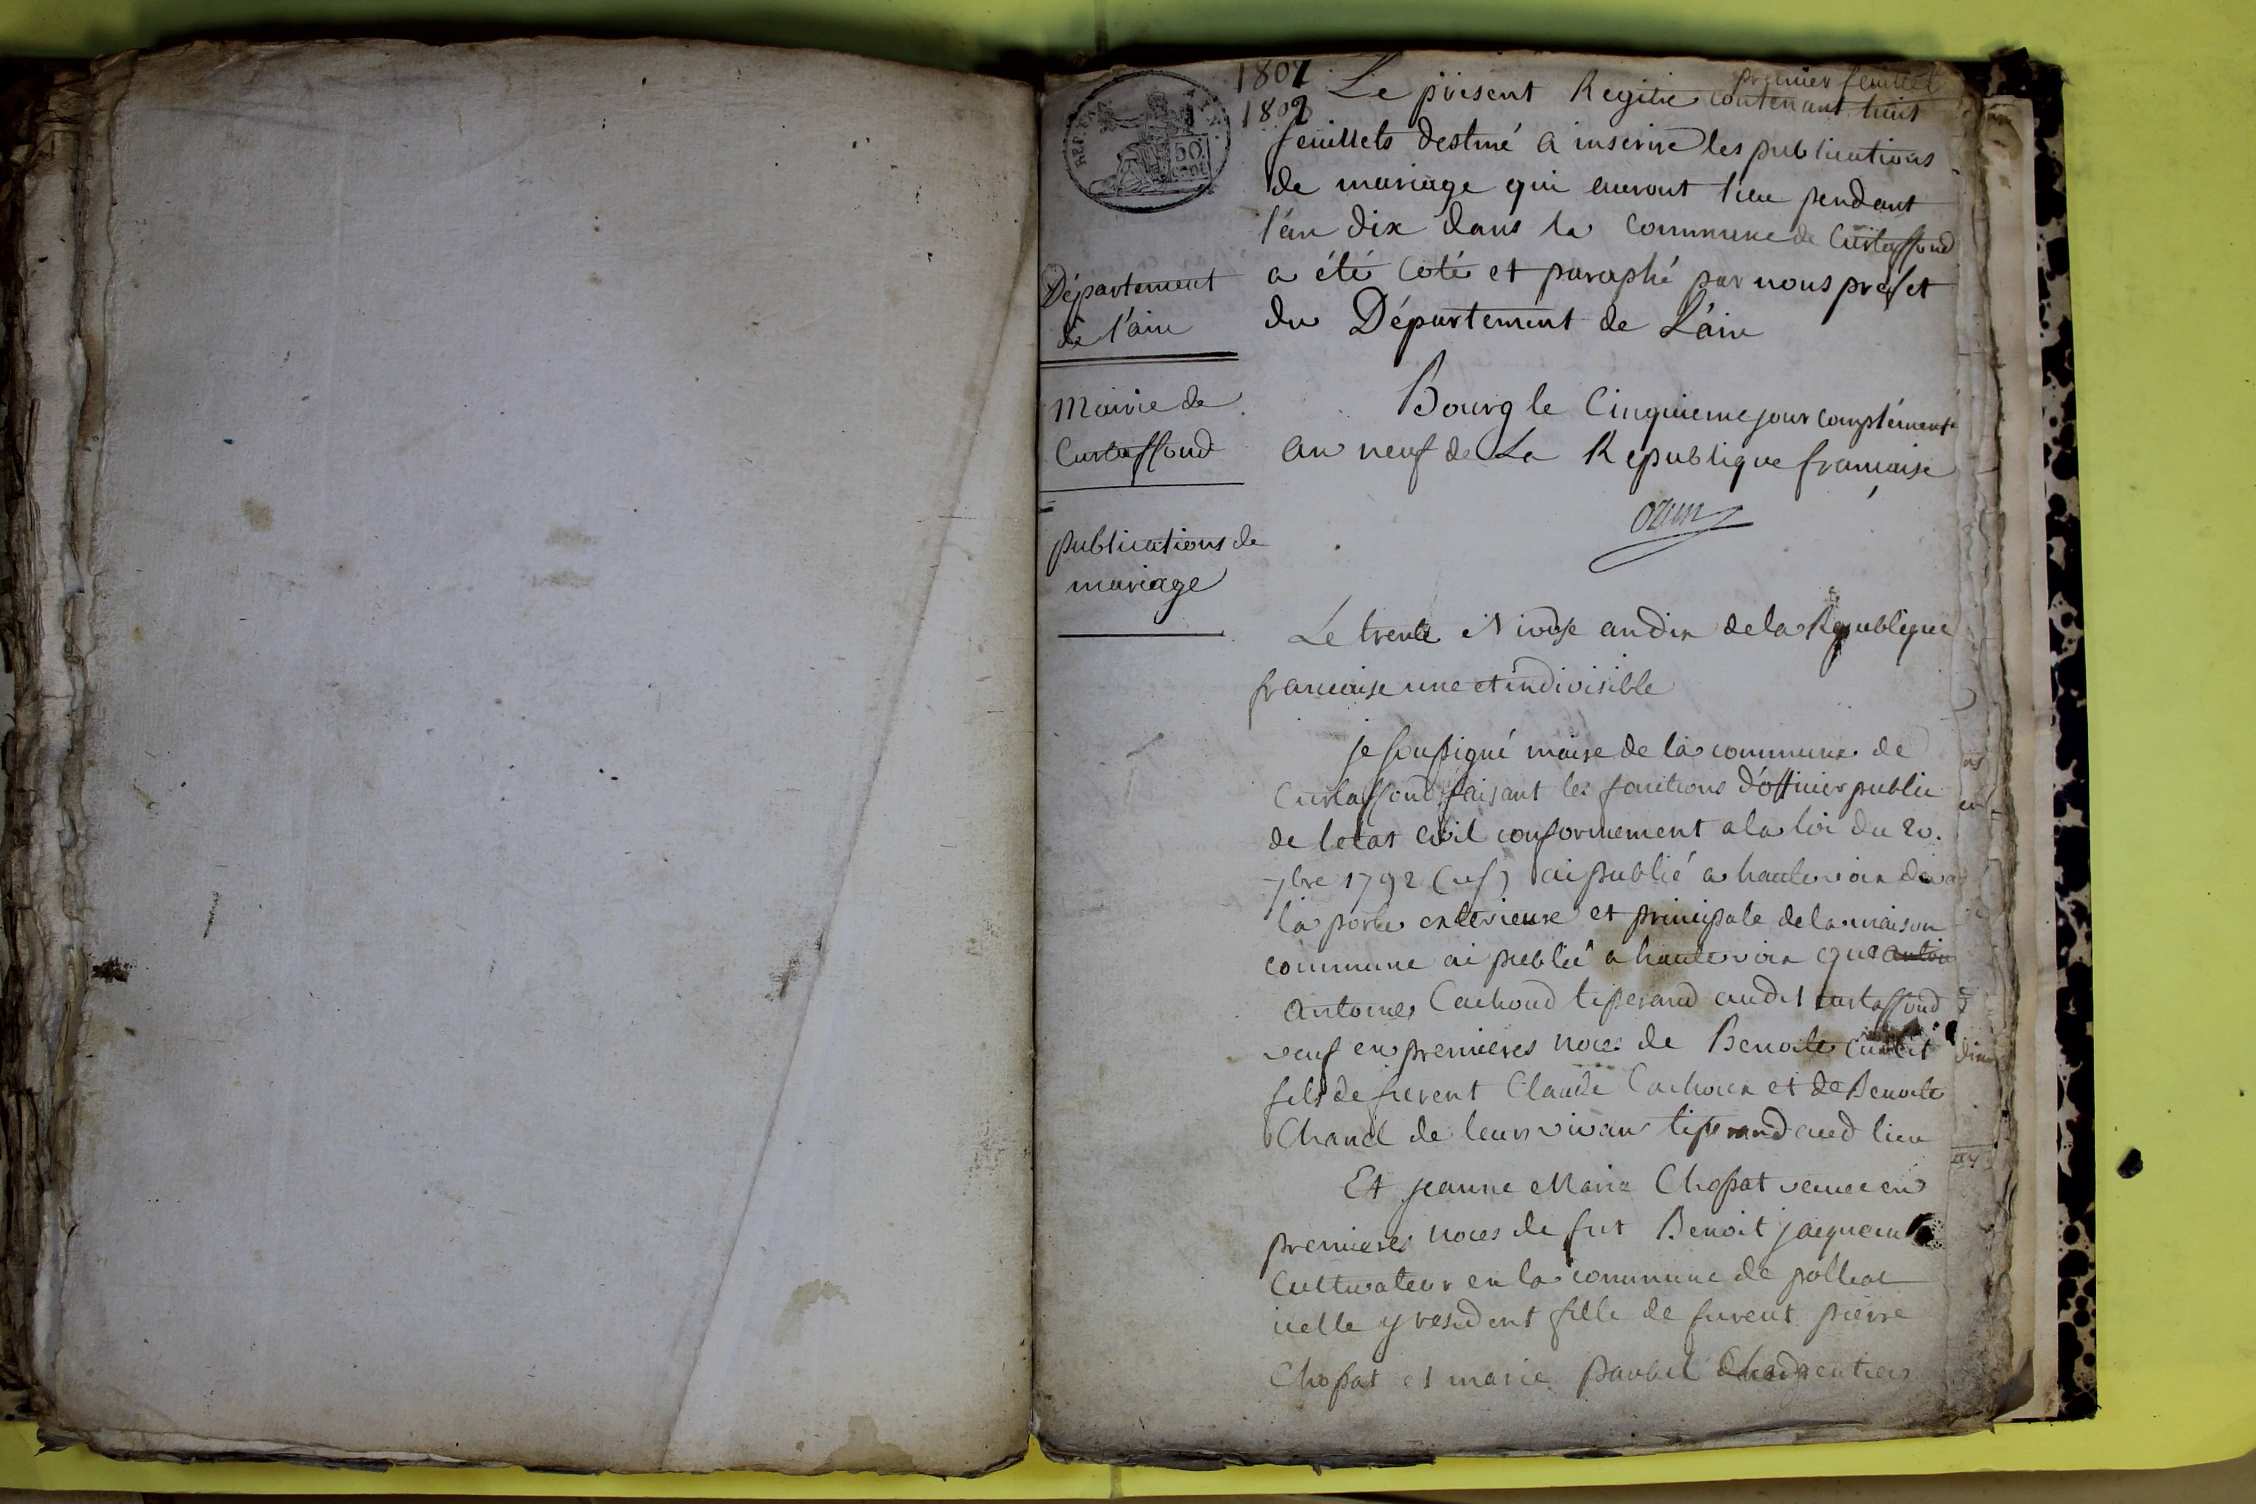 1801
1802
premier feuillet
Le présent Registre contenant huit
feuillets destiné a inscrire les publications
de mariage qui auront lieu pendant
l'an dix dans la Commune de Curtaffond
a été coté et paraphé par nous préfet
du Département de L'ain
Département
de l'ain
Mairie de
Curtaffond
publications de
mariage
Bourg le Cinquieme jour complément
an neuf de La Republique francaise
ozun
Le trente Nivose an dix de la Republique
francaise une et indivisible
je soussigné maire de la commune de
Curtaffond faisant les fonctions d'officier public
de l'etat civil conformement a la loi du 20.
7bre 1792 (vs) ai publié a haute voix
la porte exterieure et principale de la maison
commune ai publié a haute voix que antoin
Antoine Cachoud tisserand audit Curtaffond
veuf en premieres noces de Benoite
fils de furent Claude Cachoux et de Benoite
Chanel de leur vivan tisserand aud lieu
Et jeanne Marie Chossat veuve en
premieres noces de fut Benoit
Cultivateur en la commune de polliat
icelle y resident fille de furent pierre
Chossat et marie charpentier